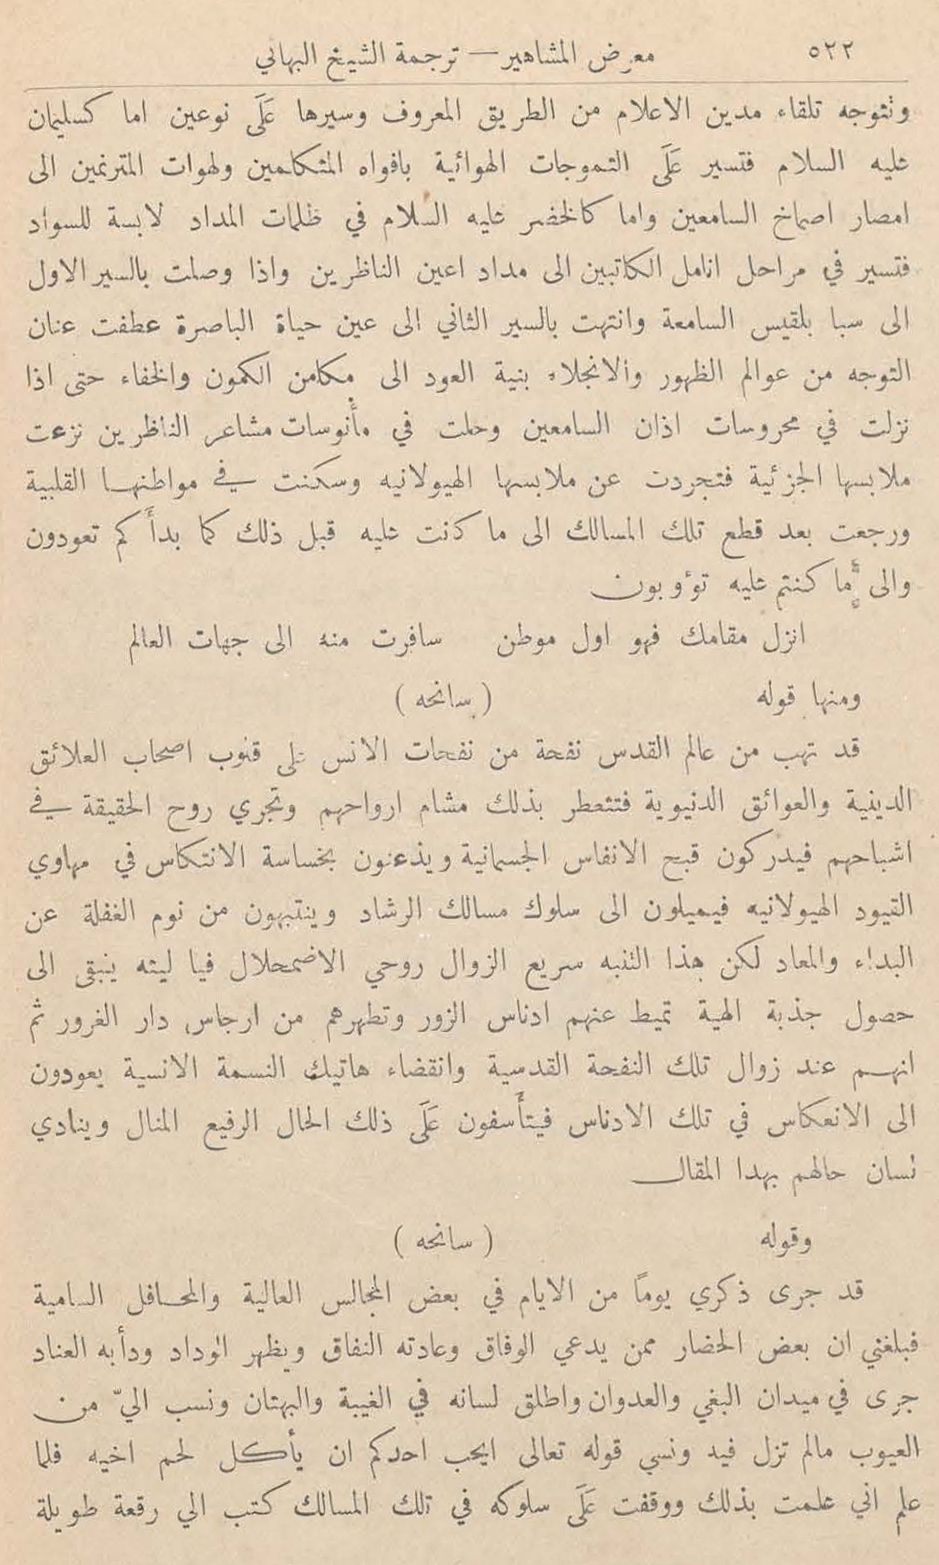 ٥٢٢ معرض المشاهير — ترجمة الشيخ البهائي
ونتوجه تلقاء مدين الاعلام من الطريق المعروف وسيرها عَلَى نوعين اما كسليمان
عليه السلام فتسير عَلَى التموجات الهوائية بافواه المتكلمين ولهوات المترنمين الى
امصار اصماخ السامعين واما كالخضر عليه السلام في ظلمات المداد لابسة للسواد
فتسير في مراحل انامل الكاتبين الى مداد اعين الناظرين واذا وصلت بالسير الاول
الى سبا بلقيس السامعة وانتهت بالسير الثاني الى عين حياة الباصرة عطفت عنان
التوجه من عوالم الظهور والانجلاء بنية العود الى مكامن الكمون والخفاء حتى اذا
نزلت في محروسات اذان السامعين وحلت في مأنوسات مشاعر الناظرين نزعت
ملابسها الجزئية فتجردت عن ملابسها الهيولانيه وسكنت في مواطنها القلبية
ورجعت بعد قطع تلك المسالك الى ما كانت عليه قبل ذلك كما بدأكم تعودون
والى ما كنتم عليه تؤوبون
انزل مقامك فهو اول موطن سافرت منه الى جهات العالم
ومنها قوله ( سانحه )
قد تهب من عالم القدس نفحة من نفحات الانس على قلوب اصحاب العلائق
الدينية والعوائق الدنيوية فتتعطر بذلك مشام ارواحهم وتجري روح الحقيقة في
اشباحهم فيدركون قبح الانفاس الجسمانية ويذعنون بخساسة الانتكاس في مهاوي
القيود الهيولانيه فيميلون الى سلوك مسالك الرشاد وينتبهون من نوم الغفلة عن
البداء والمعاد لكن هذا التنبه سريع الزوال روحي الاضمحلال فيا ليته ينبقى الى
حصول جذبة الهية تميط عنهم ادناس الزور وتطهرهم من ارجاس دار الغرور ثم
انهم عند زوال تلك النفحة القدسية وانقضاء هاتيك النسمة الانسية يعودون
الى الانعكاس في تلك الادناس فيتأسفون عَلَى ذلك الحال الرفيع المنال وينادي
لسان حالهم بهدا المقال
وقوله ( سانحه )
قد جرى ذكري يوماً من الايام في بعض المجالس العالية والمحافل السامية
فبلغني ان بعض الحضار ممن يدعي الوفاق وعادته النفاق ويظهر الوداد ودأبه العناد
جرى في ميدان البغي والعدوان واطلق لسانه في الغيبة والبهتان ونسب اليّ من
العيوب مالم تزل فيه ونسي قوله تعالى ايحب احدكم ان يأكل لحم اخيه فلما
علم اني علمت بذلك ووقفت عَلَى سلوكه في تلك المسالك كتب الي رقعة طويلة